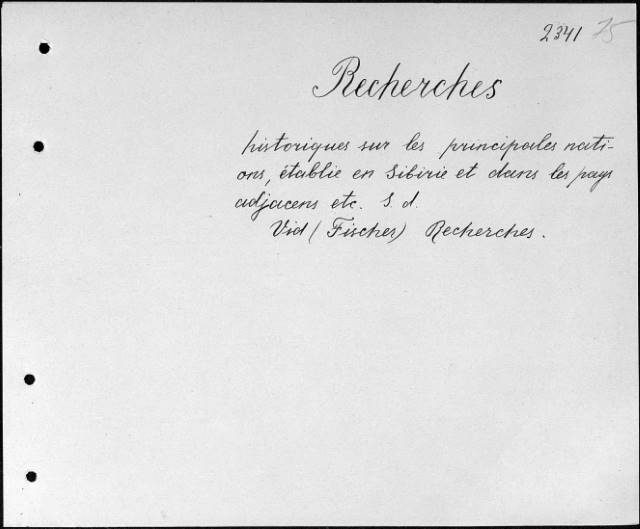 2341 75
Recherches
historiques sur les principales nati-
ons, établie en Sibirie et dans les pays
adjacens etc. S. d.
Vid (Fischer) Recherches.